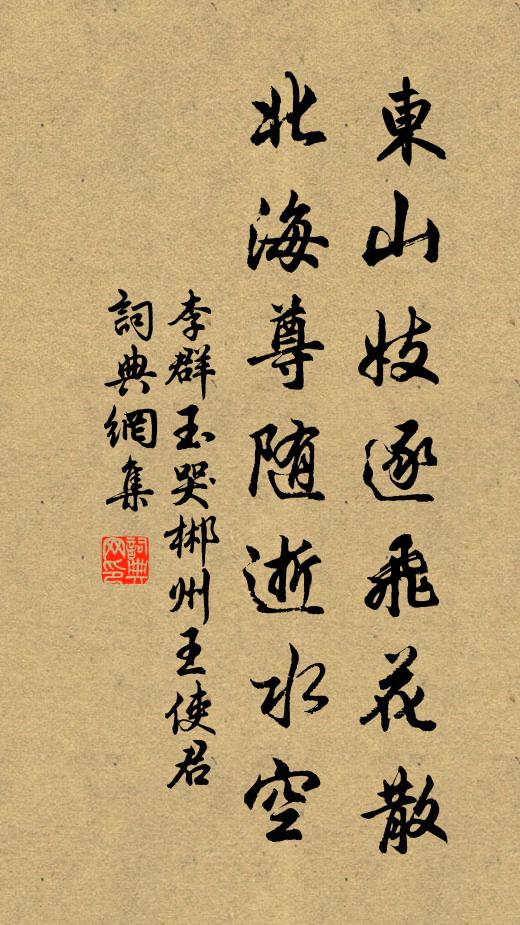 東山妓逐飛花散
北海尊随逝水空
李群玉哭郴州王使君
詞典網集
詞典
网印